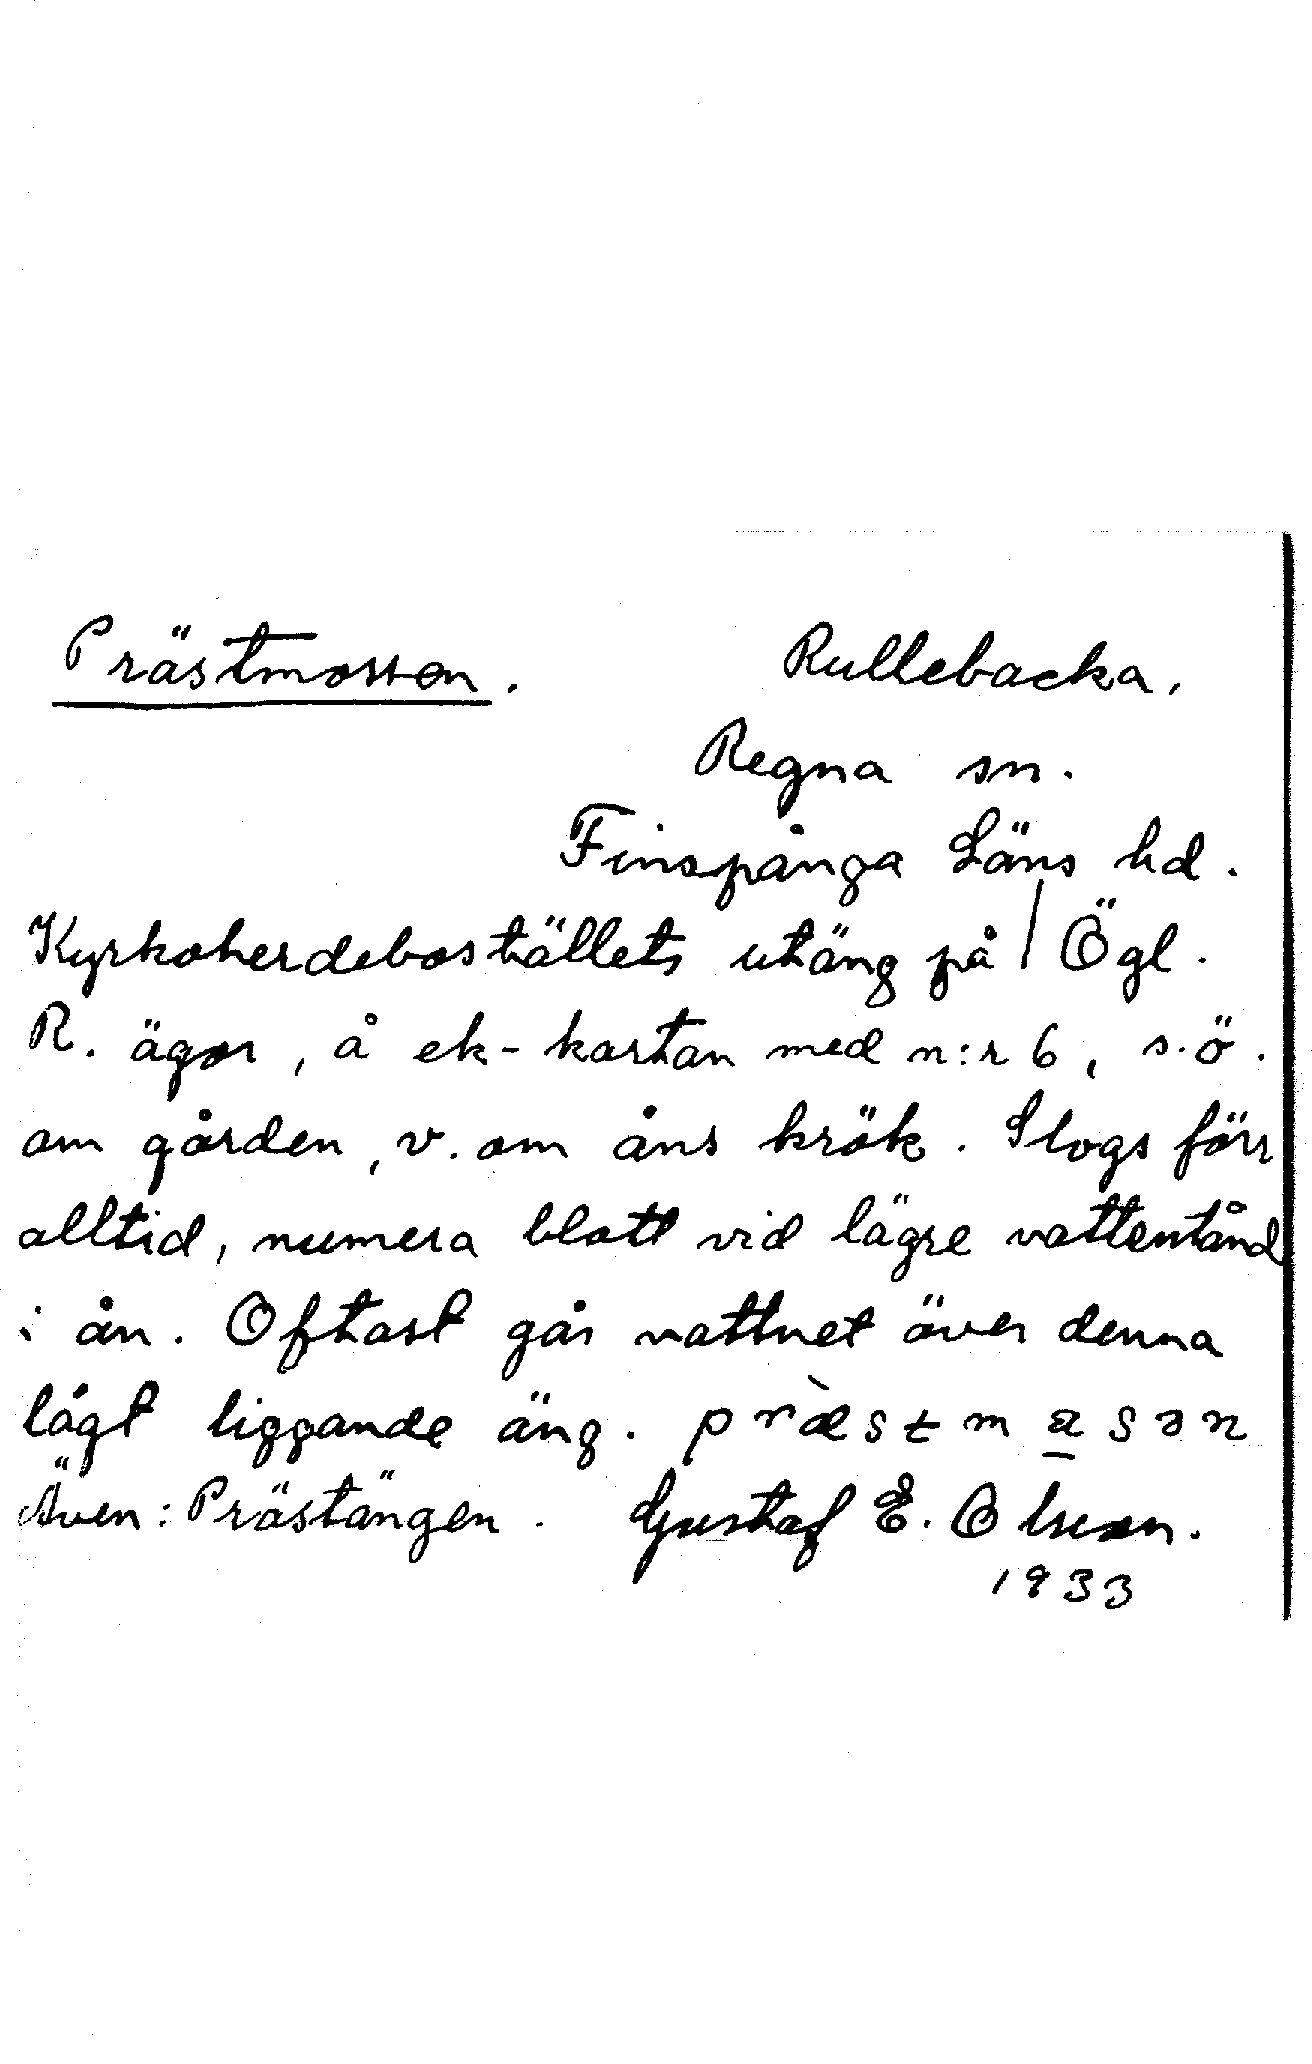 Prästmossen. Rullebacka,
Regna sn.
Finspånga Läns hd.
Kyrkoherdebostället, utäng på / Ögl.
R. ägor, å ek-kartan med n:r 6, s.ö.
om gården, v. om åns krök. Slogs förr
alltid, numera blott vid lägre vattentånd
i ån. Oftast går vattnet över denna
lågt liggande äng. præ̀stmasən
Även: Prästängen. Gustaf E. Olsson.
1933